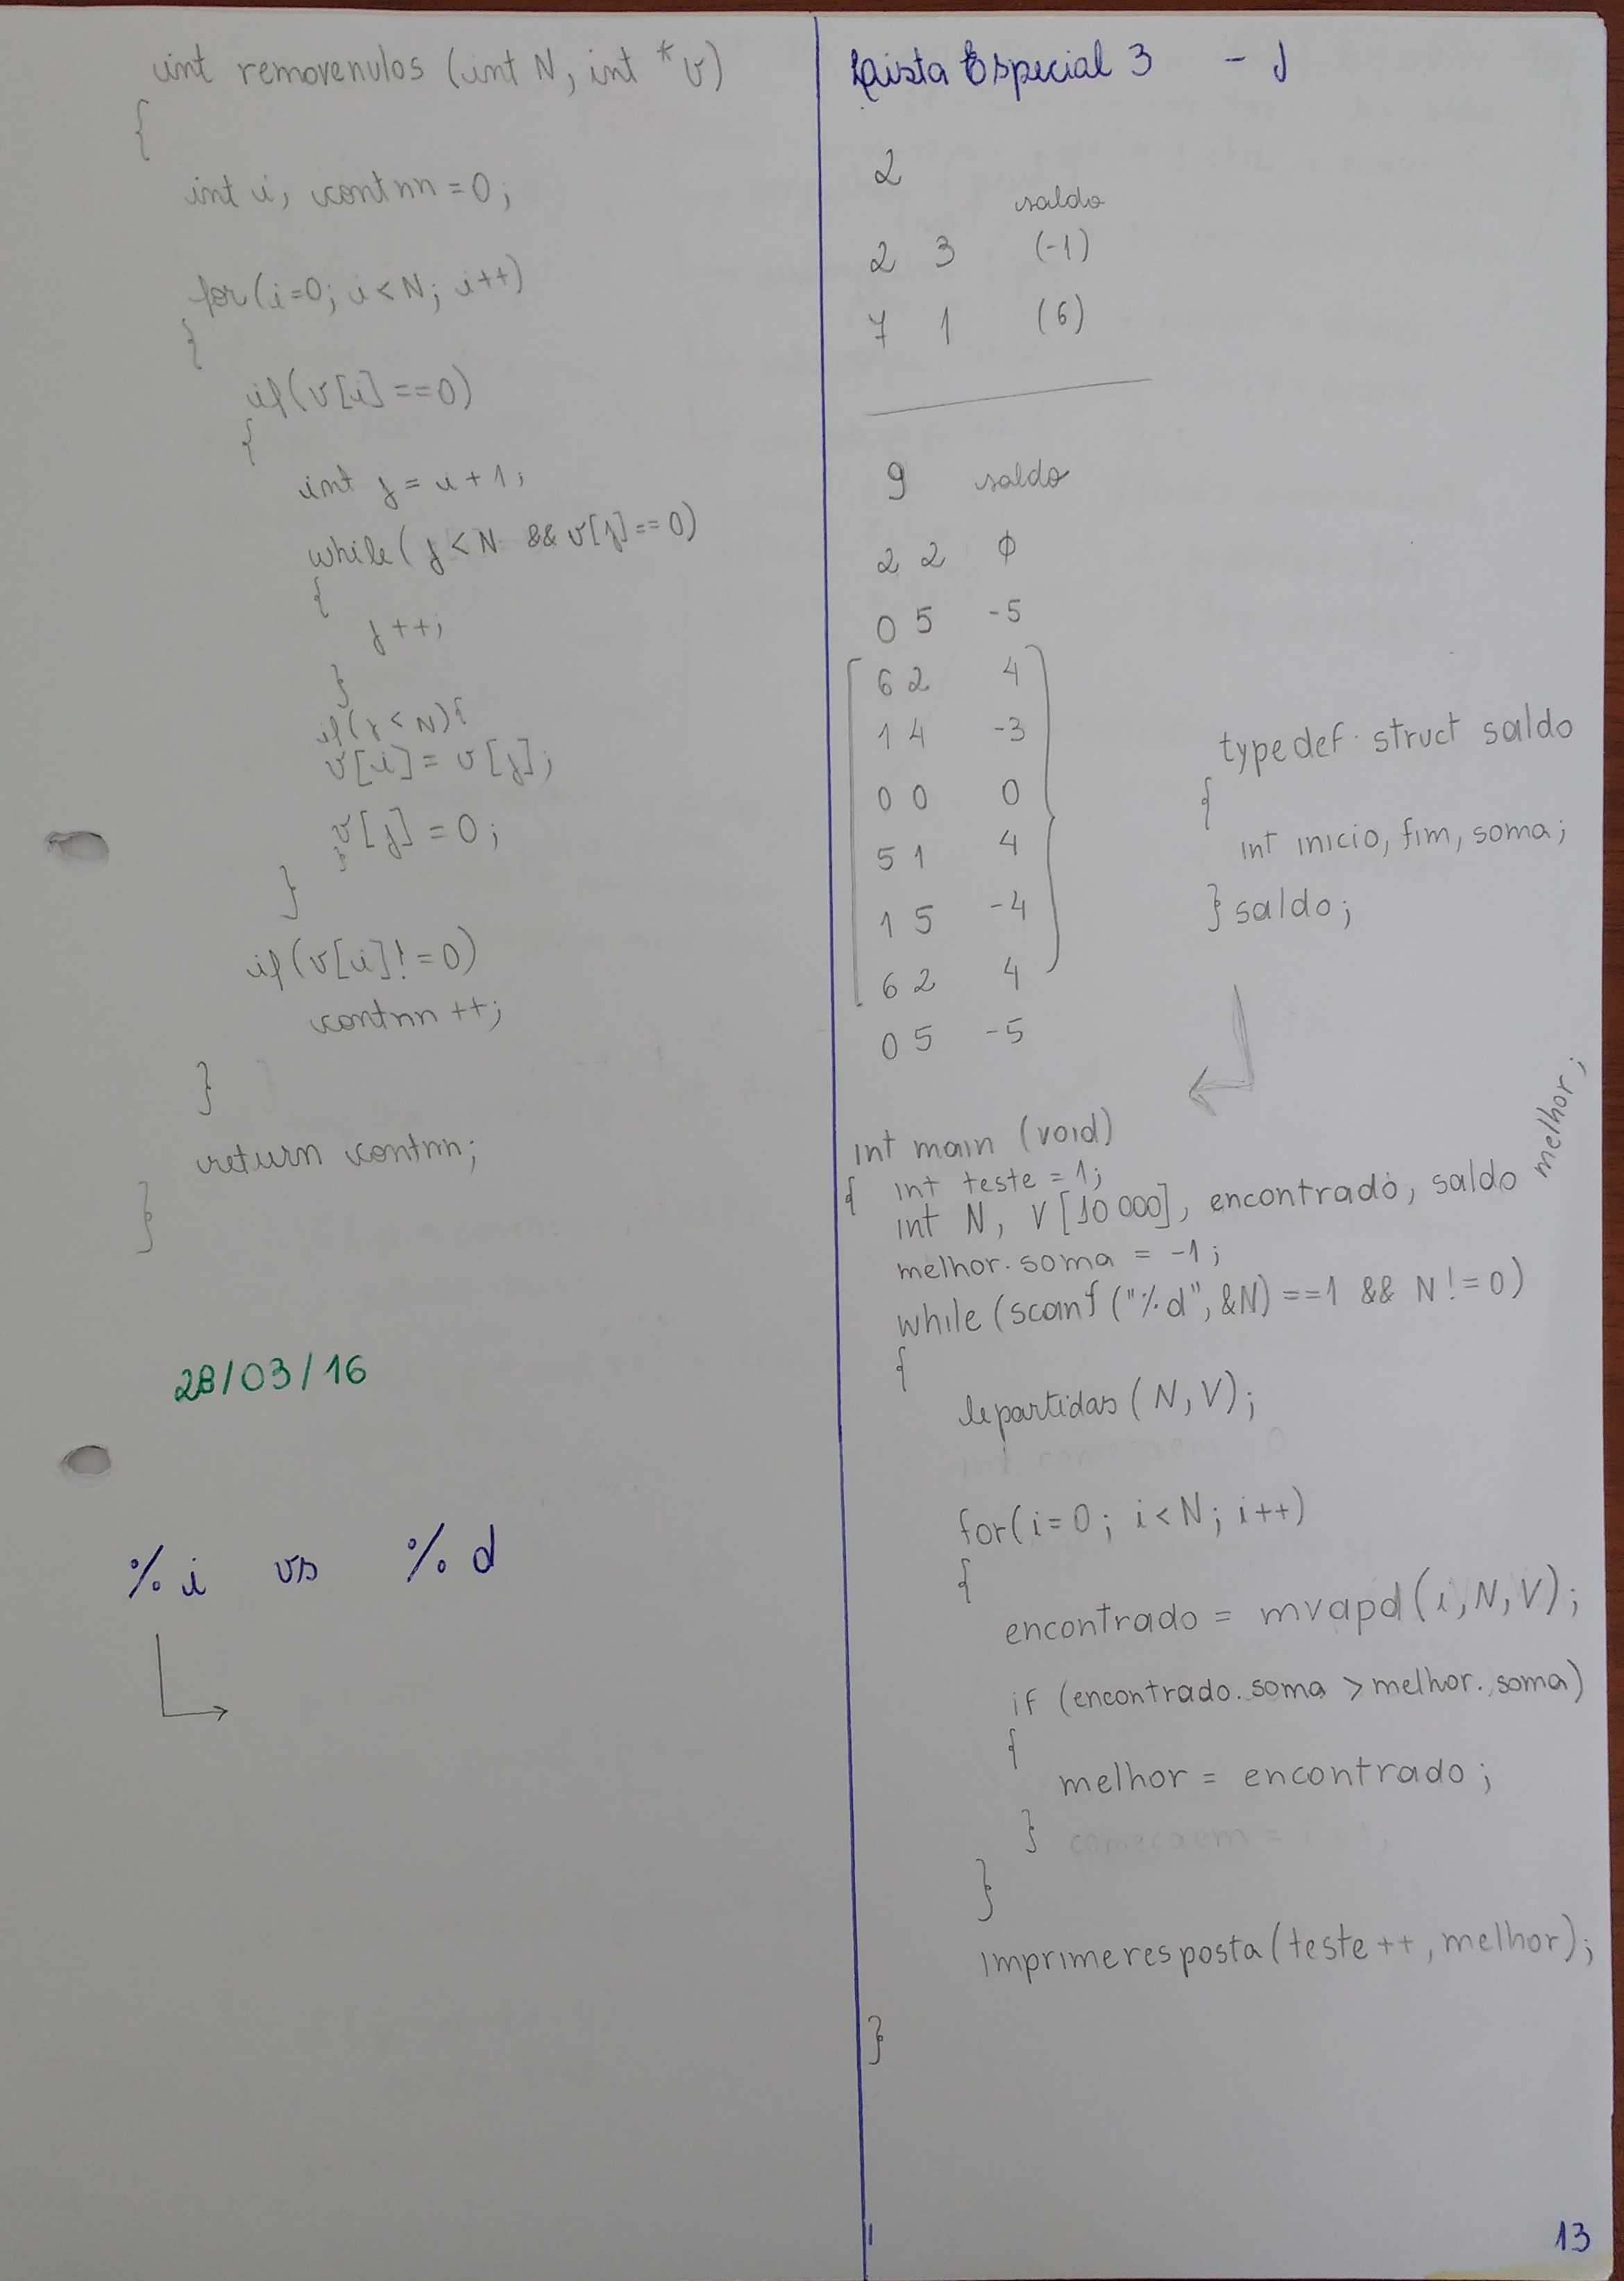 int removenulos (int N, int *v)
{
int i, contnn = 0;
for(i=0; i<N; i++)
{
if(v[i]==0)
{
int j = i+1;
while(j<N && v[j]==0)
{
j++;
}
if(j<N){
v[i] = v[j];
v[j] = 0;
}
}
if(v[i]!=0)
contnn++;
}
return contnn;
}
28/03/16
%i vs %d
Lista Especial 3 - J
2
saldo
2 3 (-1)
7 1 (6)
9 saldo
2 2 0
0 5 -5
6 2 4
1 4 -3
0 0 0
5 1 4
1 5 -4
6 2 4
0 5 -5
typedef struct saldo
{
int inicio, fim, soma;
} saldo;
int main (void)
{ int teste = 1;
int N, V[10000], encontrado, saldo melhor;
melhor.soma = -1;
while (scanf("%d", &N)==1 && N!=0)
{
lepartidas(N,V);
for(i=0; i<N; i++)
{
encontrado = mvapd(i,N,V);
if (encontrado.soma > melhor.soma)
{
melhor = encontrado;
}
}
imprimeresposta(teste++, melhor);
}
13